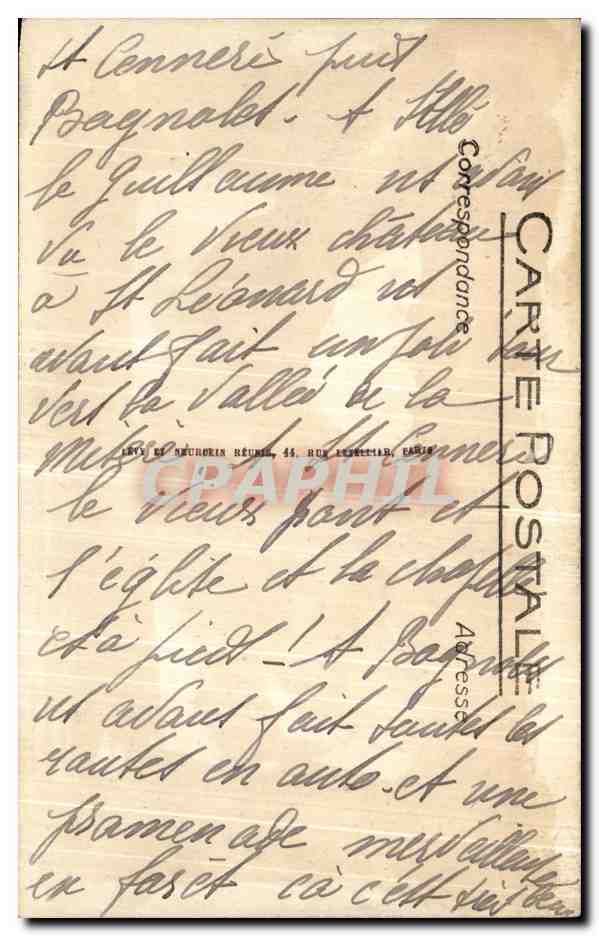 St Cenneré puis
Bagnoles. A St Cé
le Guillaume ns avons
vu le vieux château
à St Léonard ns
avons fait un joli tour
vers la vallée de la
Misère. A St Cenneri
le vieux pont et
l'église et la chapelle
et à pied_! A Bagnoles
ns avons fait toutes les
routes en auto. et une
promenade merveilleuse
en forêt çà c'est très beau
CARTE POSTALE
Correspondance
Adresse
LÉVY ET NEURDEIN RÉUNIS, 44, RUE LETELLIER, PARIS
CPAPHIL